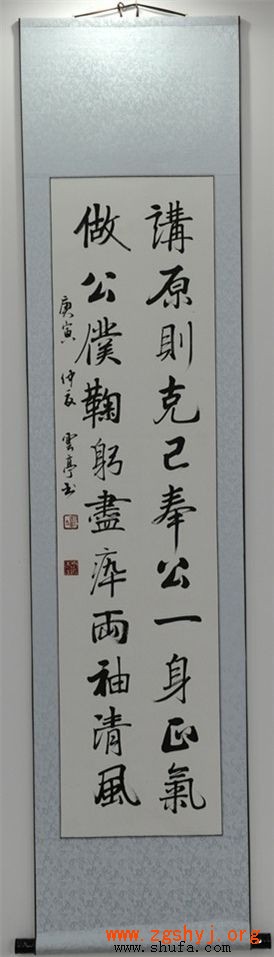 講原則克己奉公一身正氣
做公僕鞠躬盡瘁兩袖清風
庚寅 仲夏 雲亭书
www.zgshyj.org
www.shufa.com